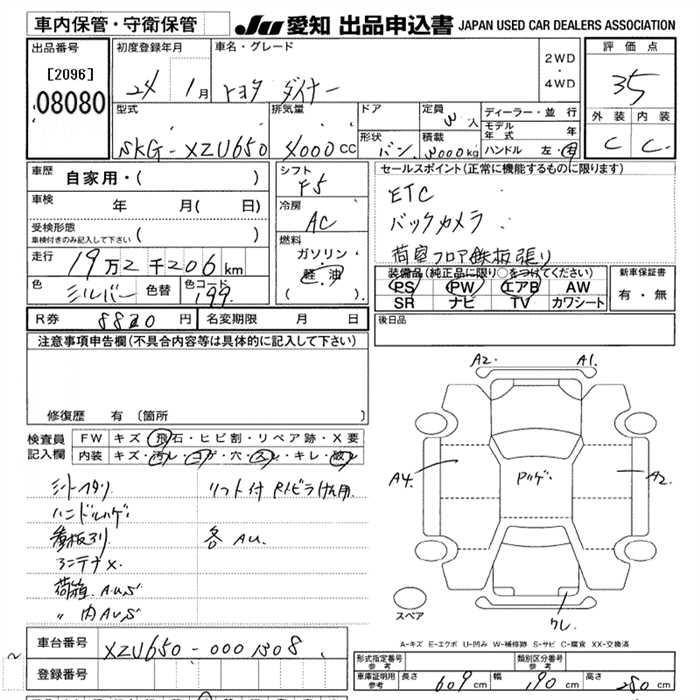 車内保管・守衛保管
JU 愛知 出品申込書 JAPAN USED CAR DEALERS ASSOCIATION
出品番号 初度登録年月 車名・グレード 評価点
[2096] 24 1月 トヨタ ダイナー 2WD・4WD 35
08080
型式 排気量 ドア 定員 人 ディーラー・並行 外装 内装
SKG-XZU650 4000CC 形状 バン 積載 kg モデル年式 年 C C
ハンドル 左・右
車歴 自家用・( ) シフト F5 セールスポイント(正常に機能するものに限ります)
車検 年 月( 日) 冷房 AC ETC
受検形態 車検付きのみ記入して下さい ( ) バックカメラ
燃料 ガソリン・軽油 ( ) 荷室フロア鉄板張り
走行 19万2千206km
色 シルバー 色替 色コード 199
装備品(純正品に限り○をつけてください) 新車保証書
PS PW エアB AW 有・無
SR ナビ TV カワシート
R券 8820円 名変期限 月 日 後日品
注意事項申告欄(不具合内容等は具体的に記入して下さい)
修復歴 有 〔箇所
検査員記入欄 FW キズ・飛石・ヒビ割・リペア跡・X要
内装 キズ・汚レ・コゲ・穴・スレ・キレ・破レ
ハンドルハゲ
各 AU.
荷箱 AUS
〃 内AUS
A2. A1.
A4. A2
スペア
A-キズ E-エクボ U-凹み W-補修跡 S-サビ C-腐食 XX-交換済
車台番号 XZU650-0001308
登録番号
形式指定番号 参考 類別区分番号 参考
車庫証明用 参考 長さ 609cm 幅 190cm 高さ 280cm